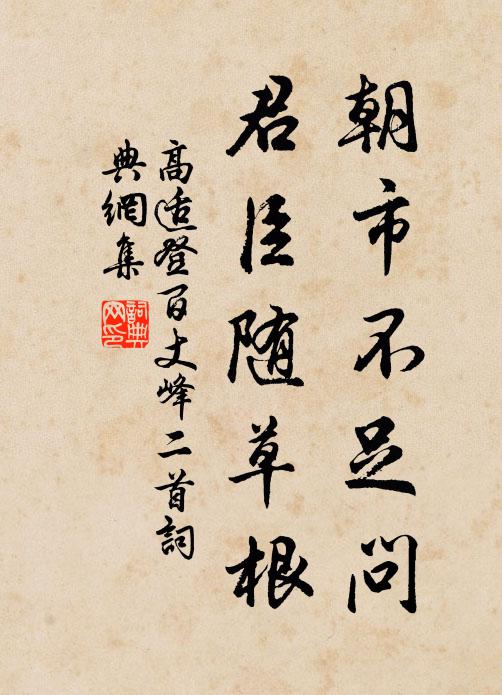 朝市不足問
君臣随草根
高适登百丈峰二首詞
典網集
詞典网印